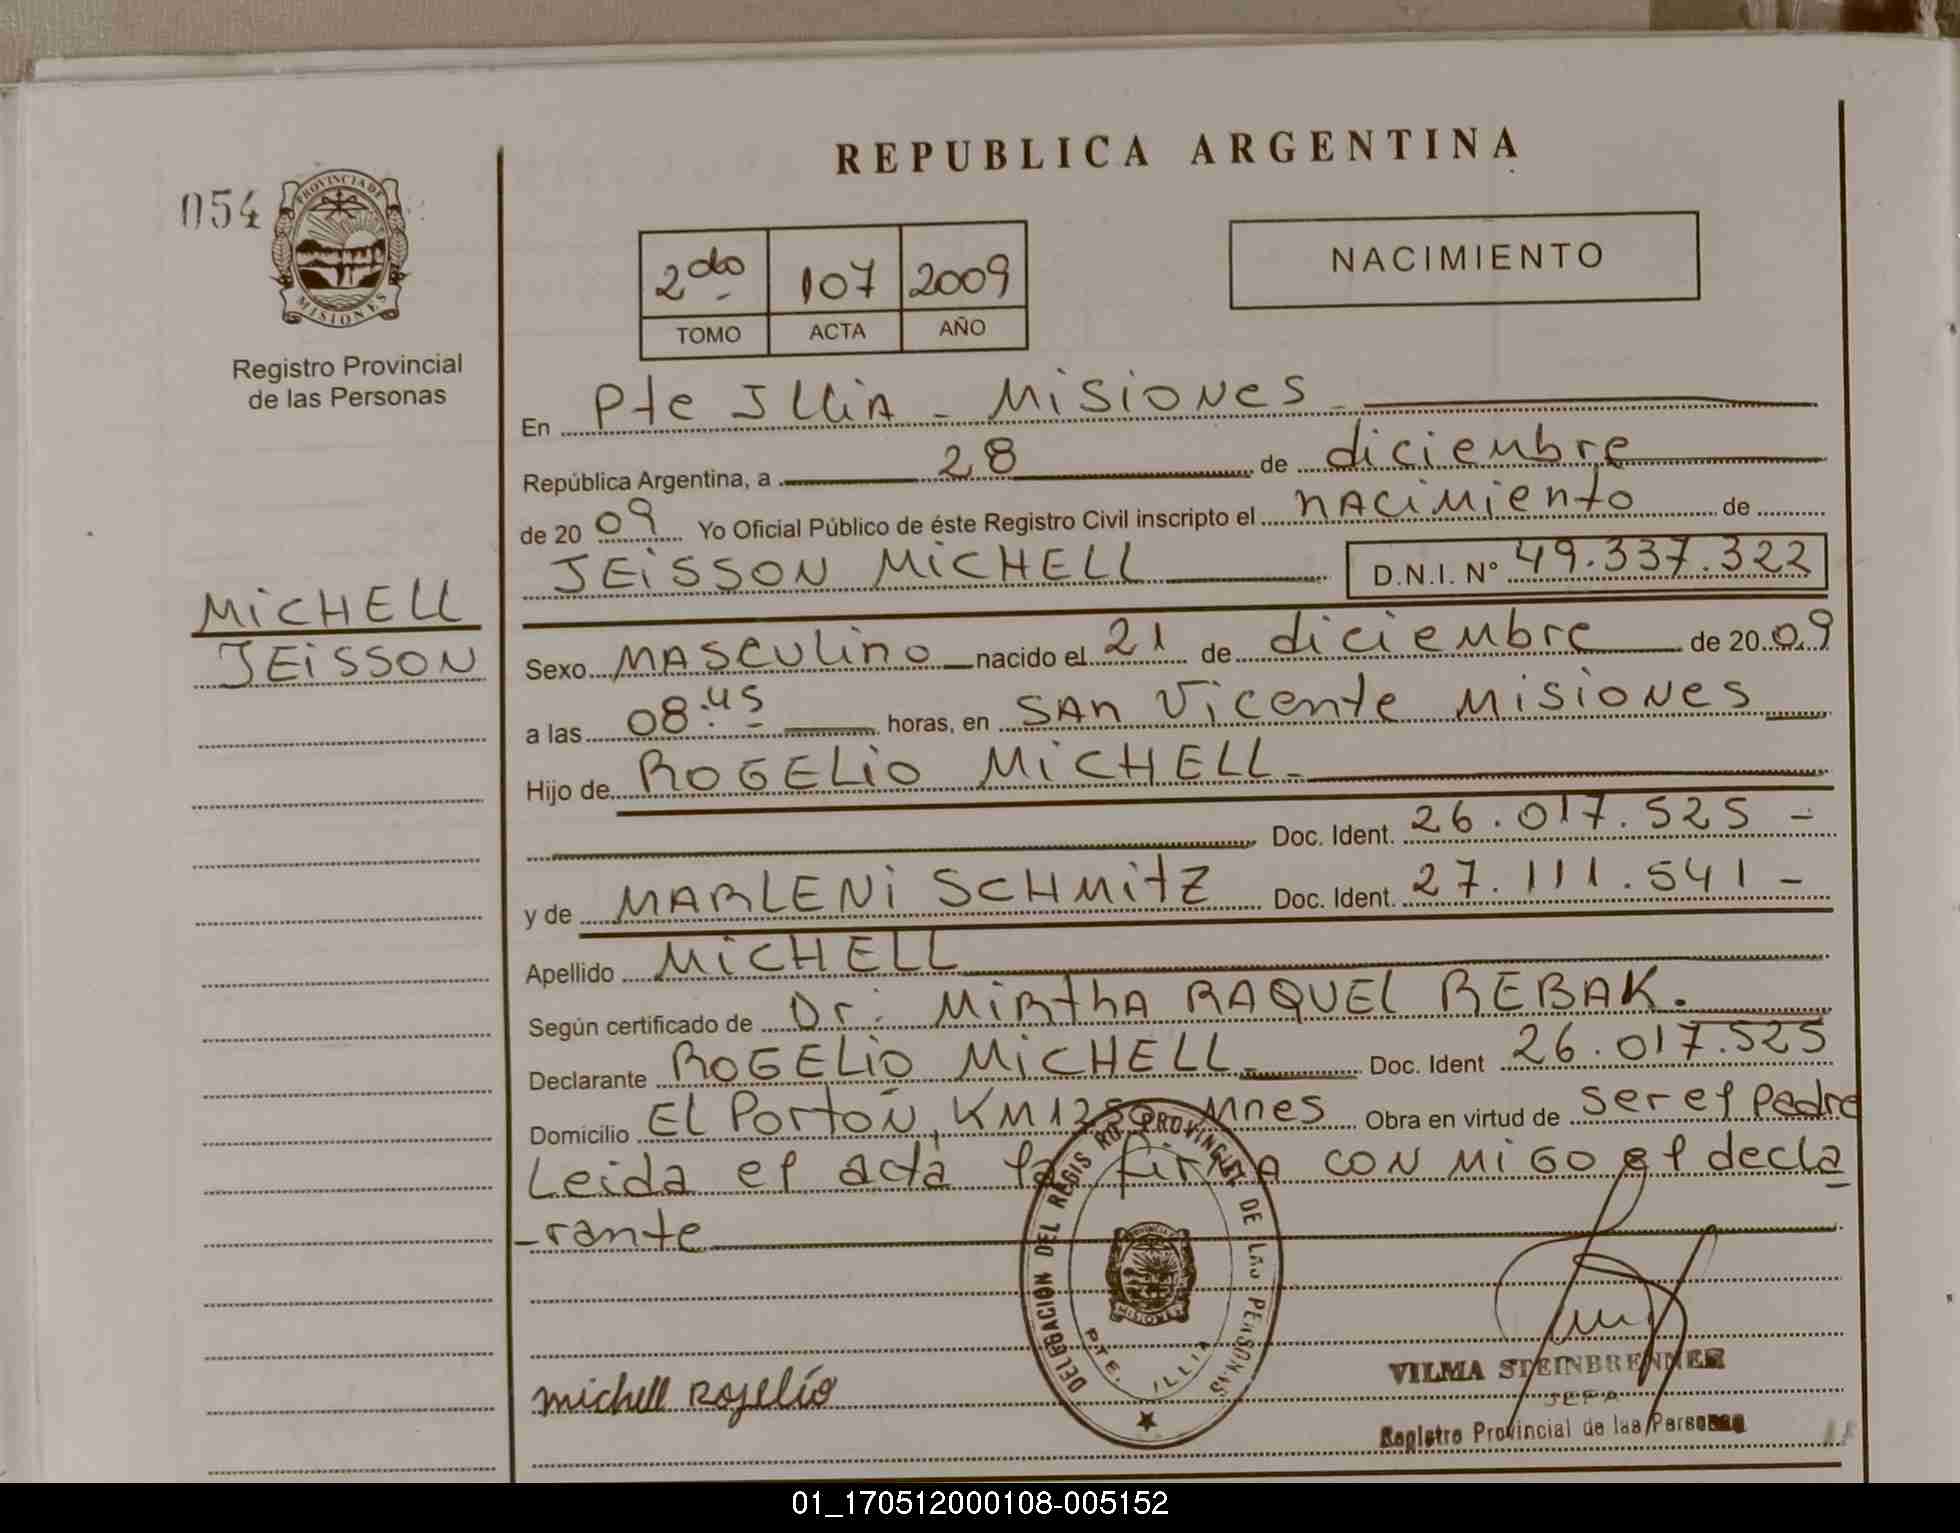 REPUBLICA ARGENTINA
054
PROVINCIA DE
MISIONES
Registro Provincial
de las Personas
2do 107 2009
TOMO ACTA AÑO
NACIMIENTO
En Pte Illia - Misiones -
República Argentina, a 28 de diciembre
de 2009 Yo Oficial Público de éste Registro Civil inscripto el nacimiento de
JEISSON MICHELL D.N.I. N° 49.337.322
MICHELL
JEISSON
Sexo MASCULINO nacido el 21 de diciembre de 2009
a las 08:45 horas, en SAN Vicente Misiones
Hijo de ROGELIO MICHELL -
Doc. Ident. 26.017.525 -
y de MARLENI SCHMITZ Doc. Ident. 27.111.541 -
Apellido MICHELL
Según certificado de Dr: MIRTHA RAQUEL REBAK.
Declarante ROGELIO MICHELL - Doc. Ident 26.017.525
Domicilio El Portón, KM Mnes Obra en virtud de ser el padre
Leida el acta la firma conmigo el decla
-rante
DELEGACIÓN DEL REGISTRO PROVINCIAL DE LAS PERSONAS
MISIONES
PTE. ILLIA
michell Rogelio
VILMA STEINBRENNER
JEFA
Registro Provincial de las Personas
01_170512000108-005152